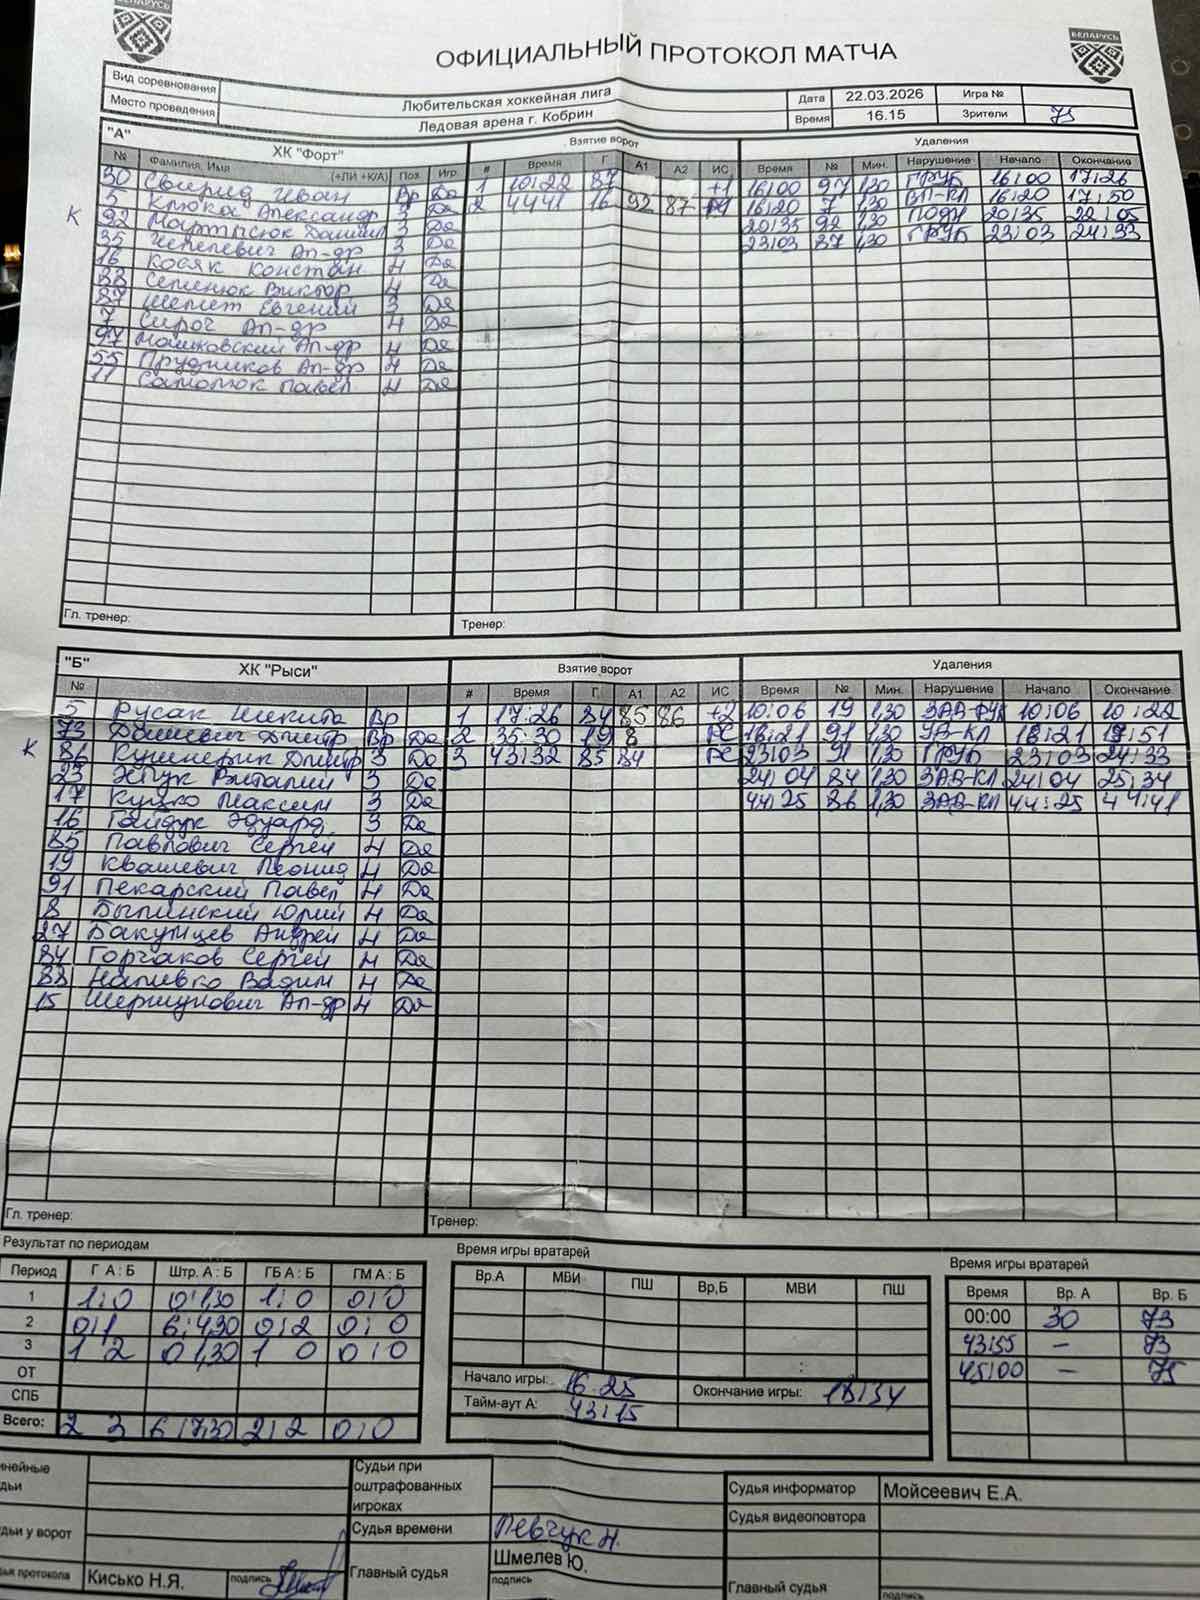 БЕЛАРУСЬ
ОФИЦИАЛЬНЫЙ ПРОТОКОЛ МАТЧА
Вид соревнования Любительская хоккейная лига Дата 22.03.2026 Игра №
Место проведения Ледовая арена г. Кобрин Время 16.15 Зрители 75
"А" ХК "Форт" Взятие ворот Удаления
№ Фамилия, Имя (+ЛИ +К/А) Поз Игр # Время Г А1 А2 ИС Время № Мин. Нарушение Начало Окончание
30 Свирид Иван Вр Да 1 10:22 87 +1 16:00 97 1,30 ГРУБ 16:00 17:26
К 5 Клюка Александр 3 Да 2 44:41 16 92 87 16:20 7 1,30 ВП-КЛ 16:20 17:50
92 Мартысюк Даниил 3 Да 20:35 92 1,30 ПОДН 20:35 22:05
35 Чепелевич Ал-др 3 Да 23:03 87 1,30 ГРУБ 23:03 24:33
16 Косяк Констан 4 Да
88 Семенюк Виктор 4 Да
87 Шемет Евгений 3 Да
7 Сирог Ал-др 4 Да
97 Машковский Ал-др 4 Да
55 Прудников Ал-др 4 Да
11 Самолюк Павел 4 Да
Гл. тренер: Тренер:
"Б" ХК "Рыси" Взятие ворот Удаления
№ # Время Г А1 А2 ИС Время № Мин. Нарушение Начало Окончание
5 Русак Никита Вр 1 17:26 84 85 86 +2 10:06 19 1,30 ЗАД-РУК 10:06 10:22
73 Данилевич Дмитр Вр Да 2 35:30 19 8 РС 18:21 91 1,30 УД-КЛ 18:21 19:51
К 86 Кушнерик Дмитр 3 Да 3 43:32 85 84 РС 23:03 91 1,30 ГРУБ 23:03 24:33
23 Жук Виталий 3 Да 24:04 84 1,30 ЗАД-КЛ 24:04 25:34
17 Куцко Максим 3 Да 44:25 86 1,30 ЗАД-КЛ 44:25 44:41
16 Гайдук Эдуард 3 Да
85 Павлович Сергей 4 Да
19 Квашевич Леонид 4 Да
91 Пекарский Павел 4 Да
8 Былинский Юрий 4 Да
27 Бакумцев Андрей 4 Да
84 Горчаков Сергей 4 Да
88 Наливко Вадим 4 Да
15 Шершунович Ал-др 4 Да
Гл. тренер: Тренер:
Результат по периодам Время игры вратарей Время игры вратарей
Период Г А : Б Штр. А : Б ГБ А : Б ГМ А : Б Вр.А МВИ ПШ Вр,Б МВИ ПШ Время Вр. А Вр. Б
1 1:0 0:1,30 1:0 0:0 00:00 30 73
2 0:1 6:4,30 0:2 0:0 43:55 – 73
3 1 2 0 1,30 1 0 0:0 45:00 – 75
ОТ Начало игры: 16.25 Окончание игры: 18:34
СПБ Тайм-аут А: 43:15
Всего: 2 3 6 7,30 2:2 0:0
Судьи при оштрафованных игроках
Судья информатор Мойсеевич Е.А.
Судья видеоповтора
Судья времени Певчук Н.
Кисько Н.Я. подпись Главный судья Шмелев Ю. подпись Главный судья подпись